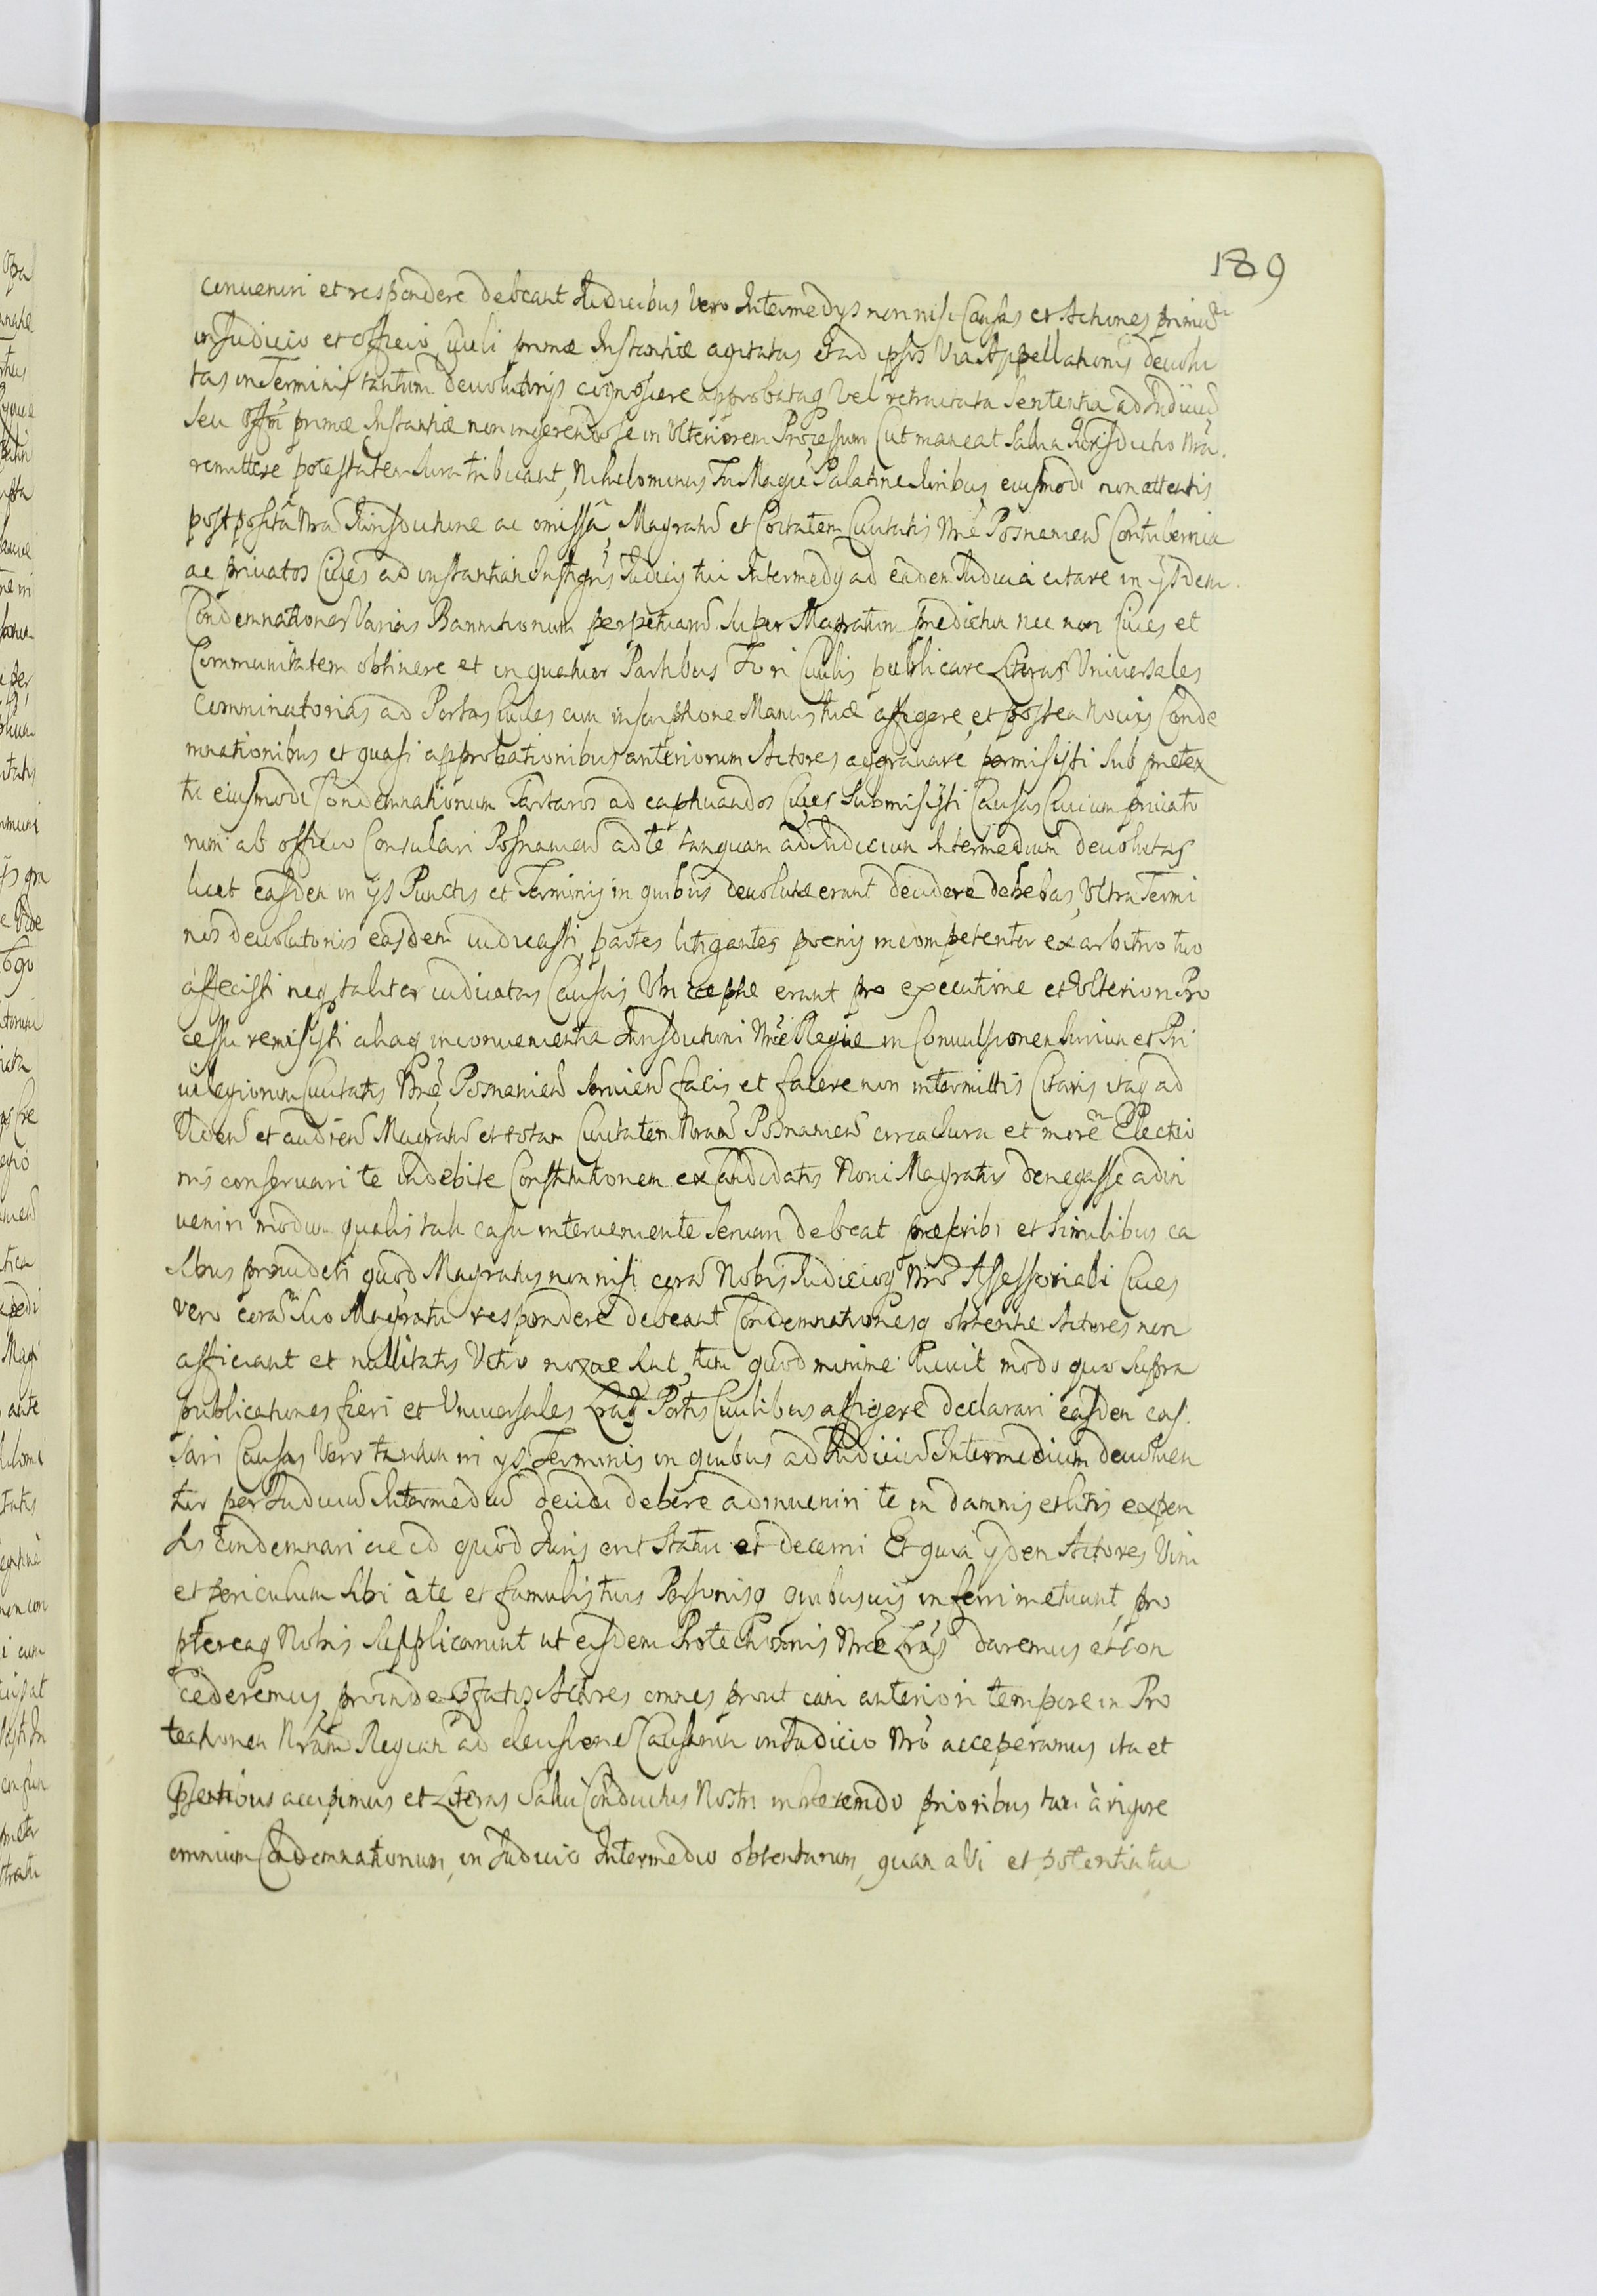 189
conveniri et respondere debeant Iudicibus vero Intermedys non nisi Causas et Actiones primũ
in Iudicio et Officio Civili primæ Instantiæ agitatas et ad ipsos Via Appellationis devolu
tas in Terminis tantum devolutionis cognoscere approbataq vel retractata Sententia ad Iudiciũ
seu Offm primæ Instantiæ non ingerendo se in Ulteriorem Processum (ut maneat salva Iurisdictio Nra
remittere potestatem Iura tribuant, Nihilominus Tu Magce Palatine Iuribus eiusmodi non attentis
postpositâ Nra Iurisdictione ac omissâ, Magratũ et Coitatem Civitatis Nrae Posnaniens Contubernia
ac privatos Cives ad instantiam Instigris Iudicij tui Intermedij ad eadem Iudicia citare in ijsdem
Condemnationes Varias Bannitionum perpetuarũ super Magratum prædictum nec non Cives et
Communitatem obtinere et in quatuor Partibus Fori Civilis publicare Literas Universales
Comminatorias ad Portas Civiles cum inscriptione Manus tuæ affigere, et postea Novis Conde
mnationibus et quasi approbationibus anteriorum Actores aggravare permisisti sub prætex
tu eiusmodi Condemnationum Tartaros ad captivandos Cives submisisti Causas Civium privato
rum ab officio Consulari Posnaniens ad te tanquam ad Iudicium Intermedium devolutas
licet easdem in ijs Punctis et Terminis in quibus devolutæ erant decidere debebas, Ultra Termi
nos devolutonis easdem iudicasti, partes litigantes poenis incompetenter ex arbitrio tuo
affecisti neq taliter iudicatas Causas Ubi cæptæ erant pro executione et Ulteriori Pro
cessu remisisti aliaq inconvenientia Iurisdictioni Nræ Regiæ in Convulsionem Iurium et Pri
vilegiorum Civitatis Nræ Posnaniens serviens facis et facere non intermittis Citaris itaq ad
Videnđ et audienđ Magratũ et totam Civitatem Nram Posnaniens circa Iura et morem Electio
nis conservari te indebite Constitutionem ex Candidatis Novi Magratus denegasse adin
veniri modum qualis tali casu interveniente servari debeat præscribi et similibus ca
sibus provideri quod Magratus non nisi corã Nobis Iudicioq Nro Assessoriali Cives
vero coram suo Magratu respondere debeant Condemnationesq obtentæ Actores non
afficiant et nullitatis Vitio noxae sint, tum quod minime licuit modo quo supra
publicationes fieri et Universales Lras Portis Civilibus affigere declarari easdem cas
sari Causas Vero tantum in ijs Terminis in quibus ad Iudiciũ Intermedium devolven
tur per Iudiciũ Intermediũ decidi debere adinveniri te in damnis et litis expen
sis condemnari ac id quod Iuris erit statui et decerni Et quia ijdem Actores Vim
et periculum sibi à te et famulis tuis Personisq quibusvis inferri metuunt, pro
ptereaq Nobis supplicarunt ut eisdem Protectionis Nræ Lras daremus et con
cederemus, proinde Actores omnes prout iam anteriori tempore in Pro
tectionem Nram Regiam ad decisionẽ Causarum in Iudicio Nro acceperamus ita et
accipimus et Literas Salvi Conductus Nostri inhærendo prioribus tam à rigore
omnium Condemnationum, in Iudicio Intermedio obtentarum, quam a Vi et potentia tua